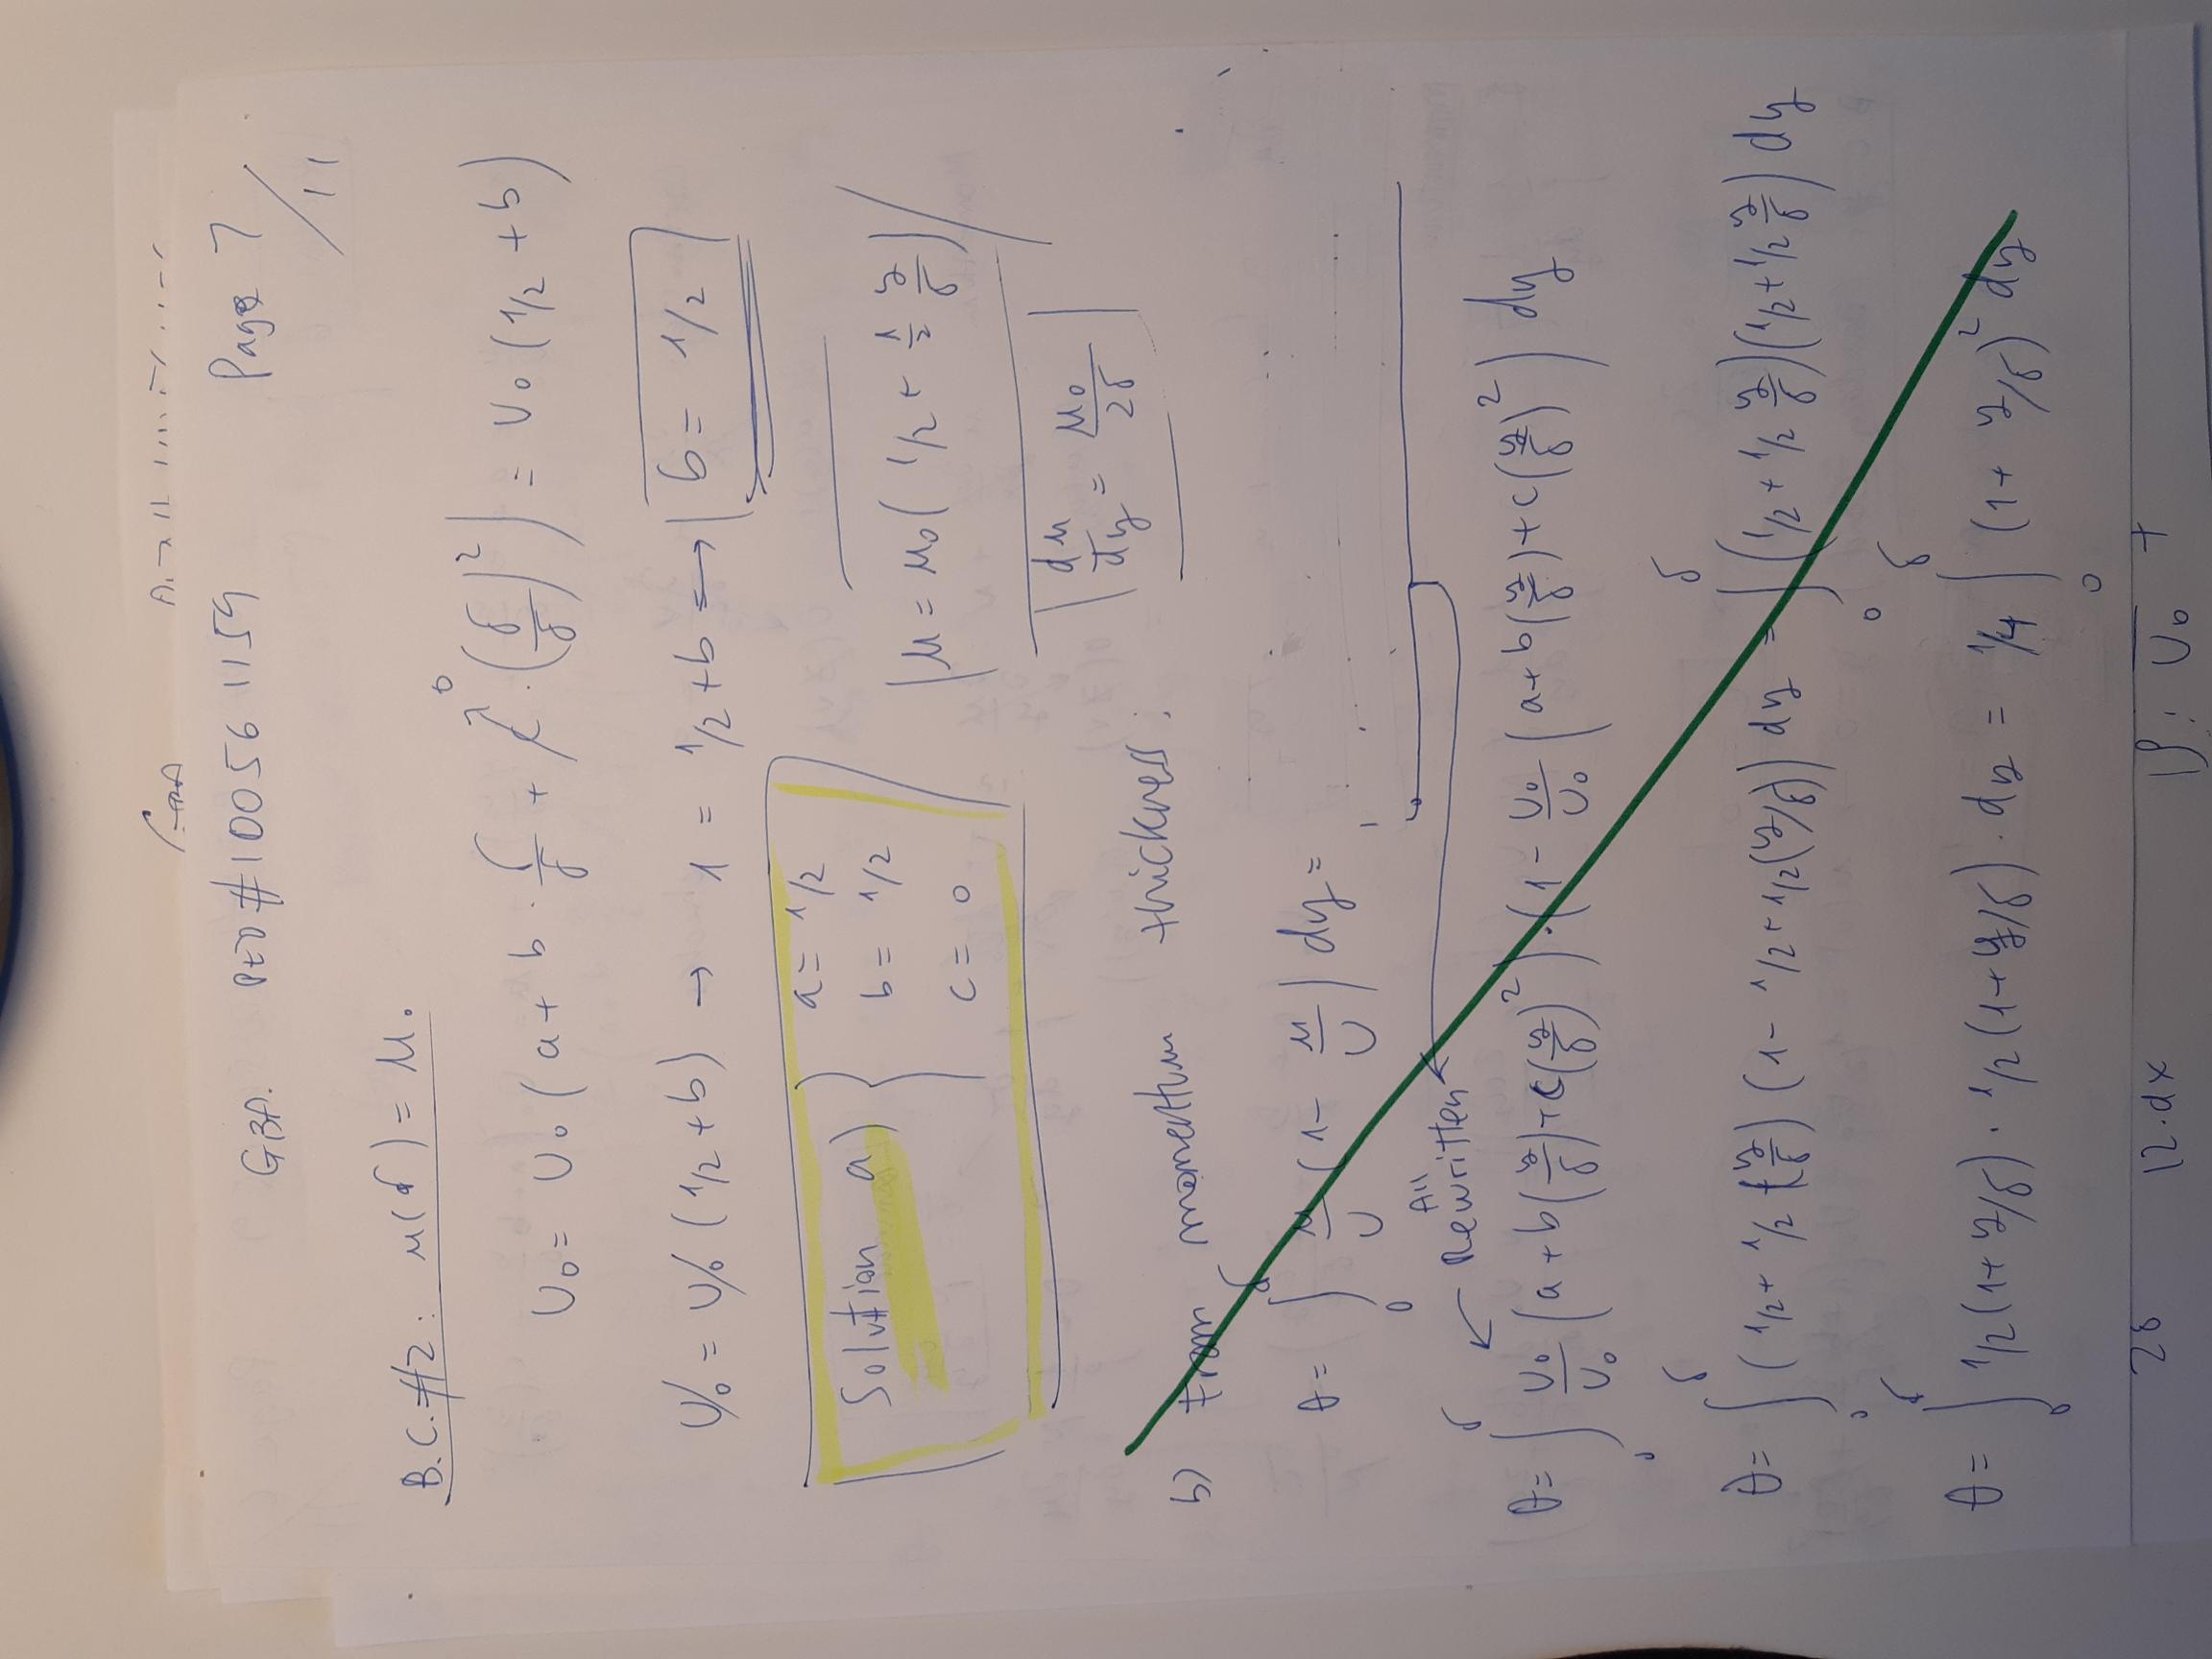 GBA. PED #100561159 Page 7/11
B.C.#2: u(δ) = U₀
U₀ = U₀ (a + b · δ/δ + c↗⁰ · (δ/δ)²) = U₀ (1/2 + b)
U₀ = U₀ (1/2 + b) → 1 = 1/2 + b → b = 1/2
Solution a) { a = 1/2
b = 1/2
c = 0
u = u₀ (1/2 + 1/2 y/δ)
du/dy = u₀/2δ
b) From momentum thickness:
θ = ∫₀^δ u/U (1 - u/U) dy =
All
Rewritten
θ = ∫₀^δ U₀/U₀ (a + b(y/δ) + c(y/δ)²) · (1 - U₀/U₀ (a + b(y/δ) + c(y/δ)²) dy
θ = ∫₀^δ (1/2 + 1/2 (y/δ) (1 - 1/2 + 1/2(y/δ)) dy = ∫₀^δ (1/2 + 1/2 y/δ)(1/2 + 1/2 y/δ) dy
θ = ∫₀^δ 1/2 (1 + y/δ) · 1/2 (1 + y/δ) · dy = 1/4 ∫₀^δ (1 + y/δ)² dy
2δ 12·dx U₀ +